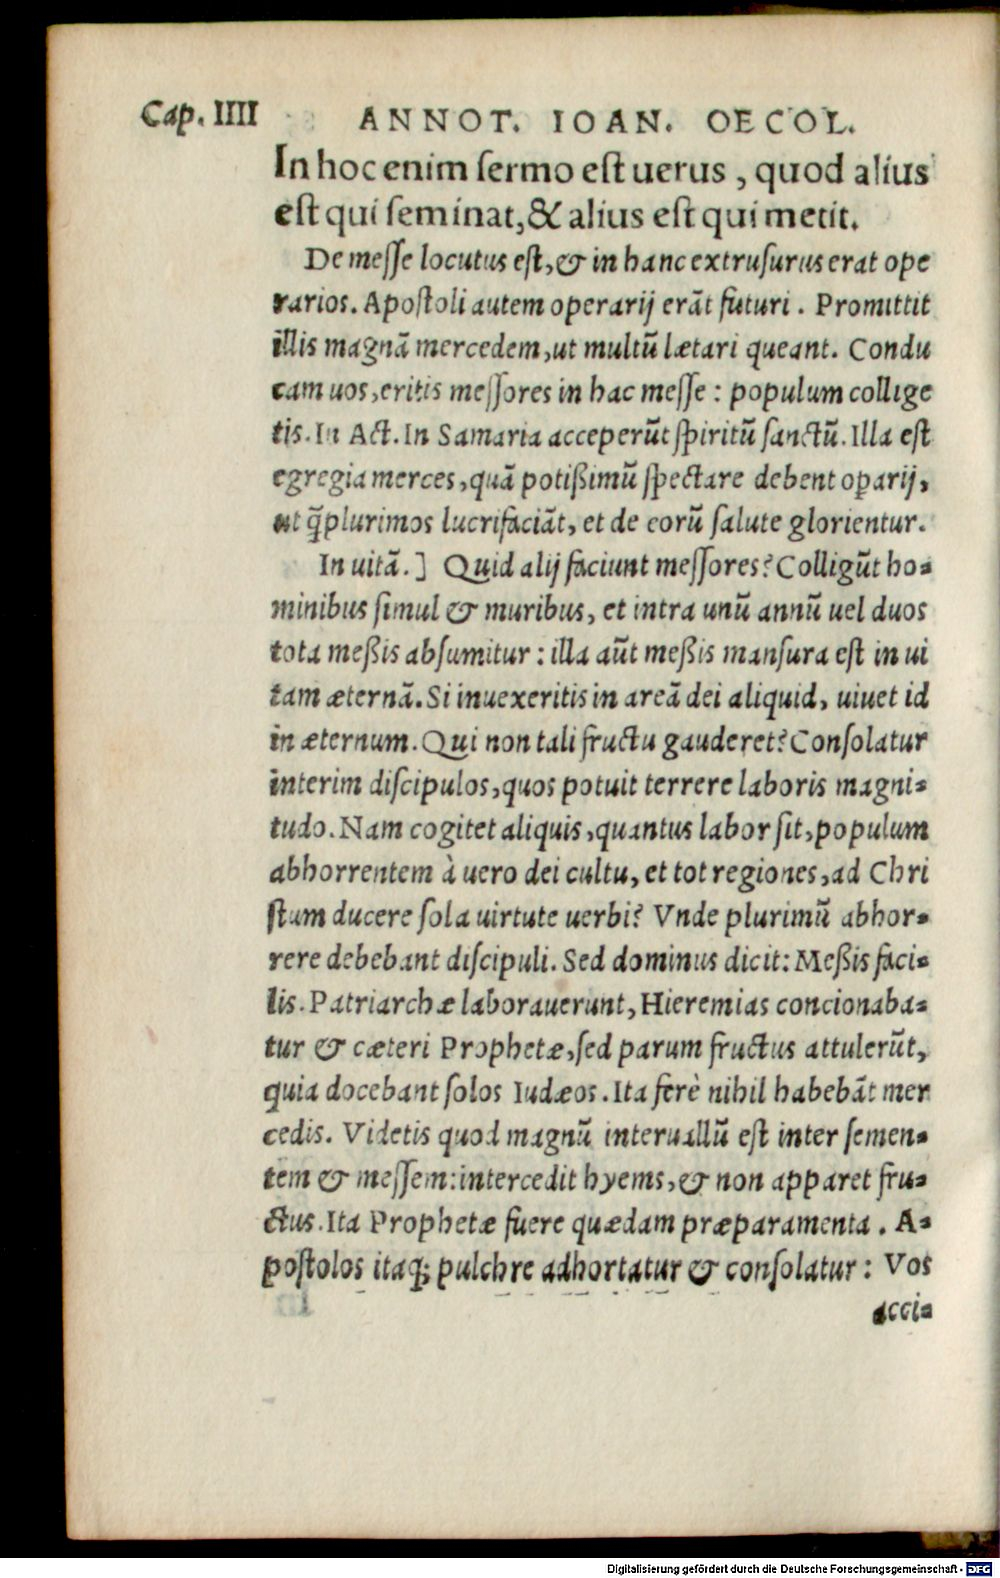 Cap. IIII ANNOT. IOAN. OECOL.
In hoc enim ſermo eſt uerus, quod alius
eſt qui ſeminat, & alius eſt qui metit.
De meſſe locutus eſt, & in hanc extruſurus erat ope
rarios. Apoſtoli autem operarij erãt futuri. Promittit
illis magnã mercedem, ut multũ lætari queant. Condu
cam uos, eritis meſſores in hac meſſe: populum collige
tis. In Act. In Samaria acceperũt ſpiritũ ſanctũ. Illa eſt
egregia merces, quã potißimũ ſpectare debent oꝑarij,
ut q̃plurimos lucrifaciãt, et de eorũ ſalute glorientur.
In uitã.] Quid alij faciunt meſſores? Colligũt ho-
minibus ſimul & muribus, et intra unũ annũ uel duos
tota meßis abſumitur: illa aũt meßis manſura eſt in ui
tam æternã. Si inuexeritis in areã dei aliquid, uiuet id
in æternum. Qui non tali fructu gauderet? Conſolatur
interim diſcipulos, quos potuit terrere laboris magni-
tudo. Nam cogitet aliquis, quantus labor ſit, populum
abhorrentem à uero dei cultu, et tot regiones, ad Chri
ſtum ducere ſola uirtute uerbi? Vnde plurimũ abhor-
rere debebant diſcipuli. Sed dominus dicit: Meßis faci-
lis. Patriarchæ laborauerunt, Hieremias concionaba-
tur & cæteri Prophetæ, ſed parum fructus attulerũt,
quia docebant ſolos Iudæos. Ita ferè nihil habebãt mer
cedis. Videtis quod magnũ interuallũ eſt inter ſemen-
tem & meſſem: intercedit hyems, & non apparet fru-
ctus. Ita Prophetæ fuere quædam præparamenta. A-
poſtolos itaq; pulchre adhortatur & conſolatur: Vos
acci-
Digitalisierung gefördert durch die Deutsche Forschungsgemeinschaft - DFG